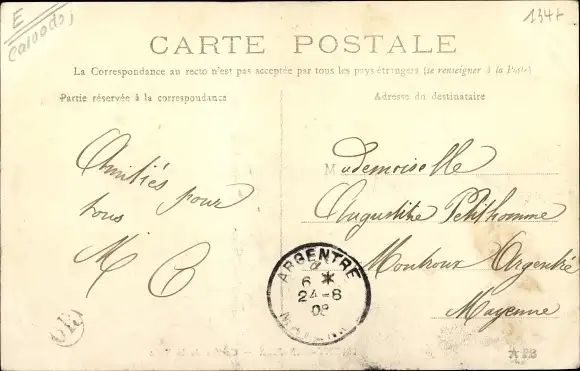 E
Calvados
1347
CARTE POSTALE
La Correspondance au recto n'est pas acceptée par tous les pays étrangers (se renseigner à la Poste)
Partie réservée à la correspondance
Adresse du destinataire
Amitiés pour
tous
M B
Mademoiselle
Augustine Petithomme
Argentré
Mayenne
ARGENTRÉ
6 *
24-8
08
MAYENNE